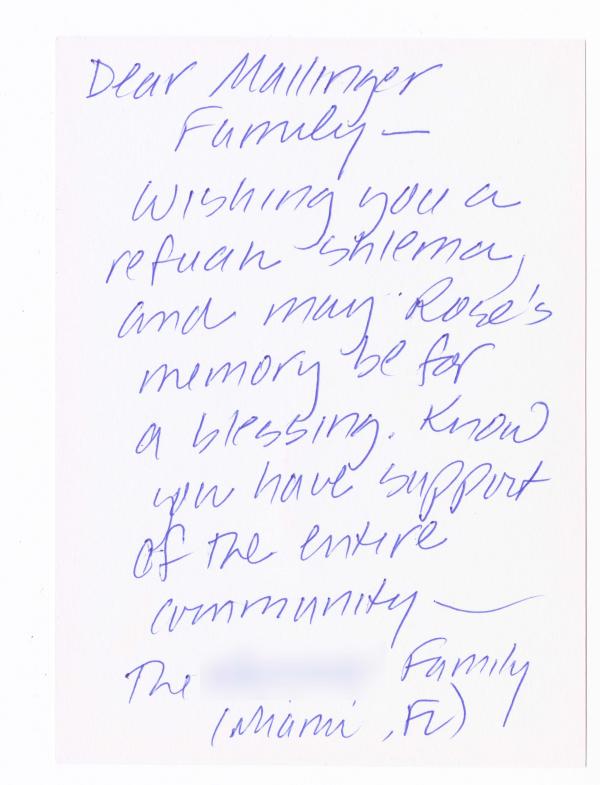 Dear Mallinger
Family —
Wishing you a
refuah shlema,
and may Rose's
memory be for
a blessing. Know
you have support
of the entire
community —
The Family
(Miami, FL)